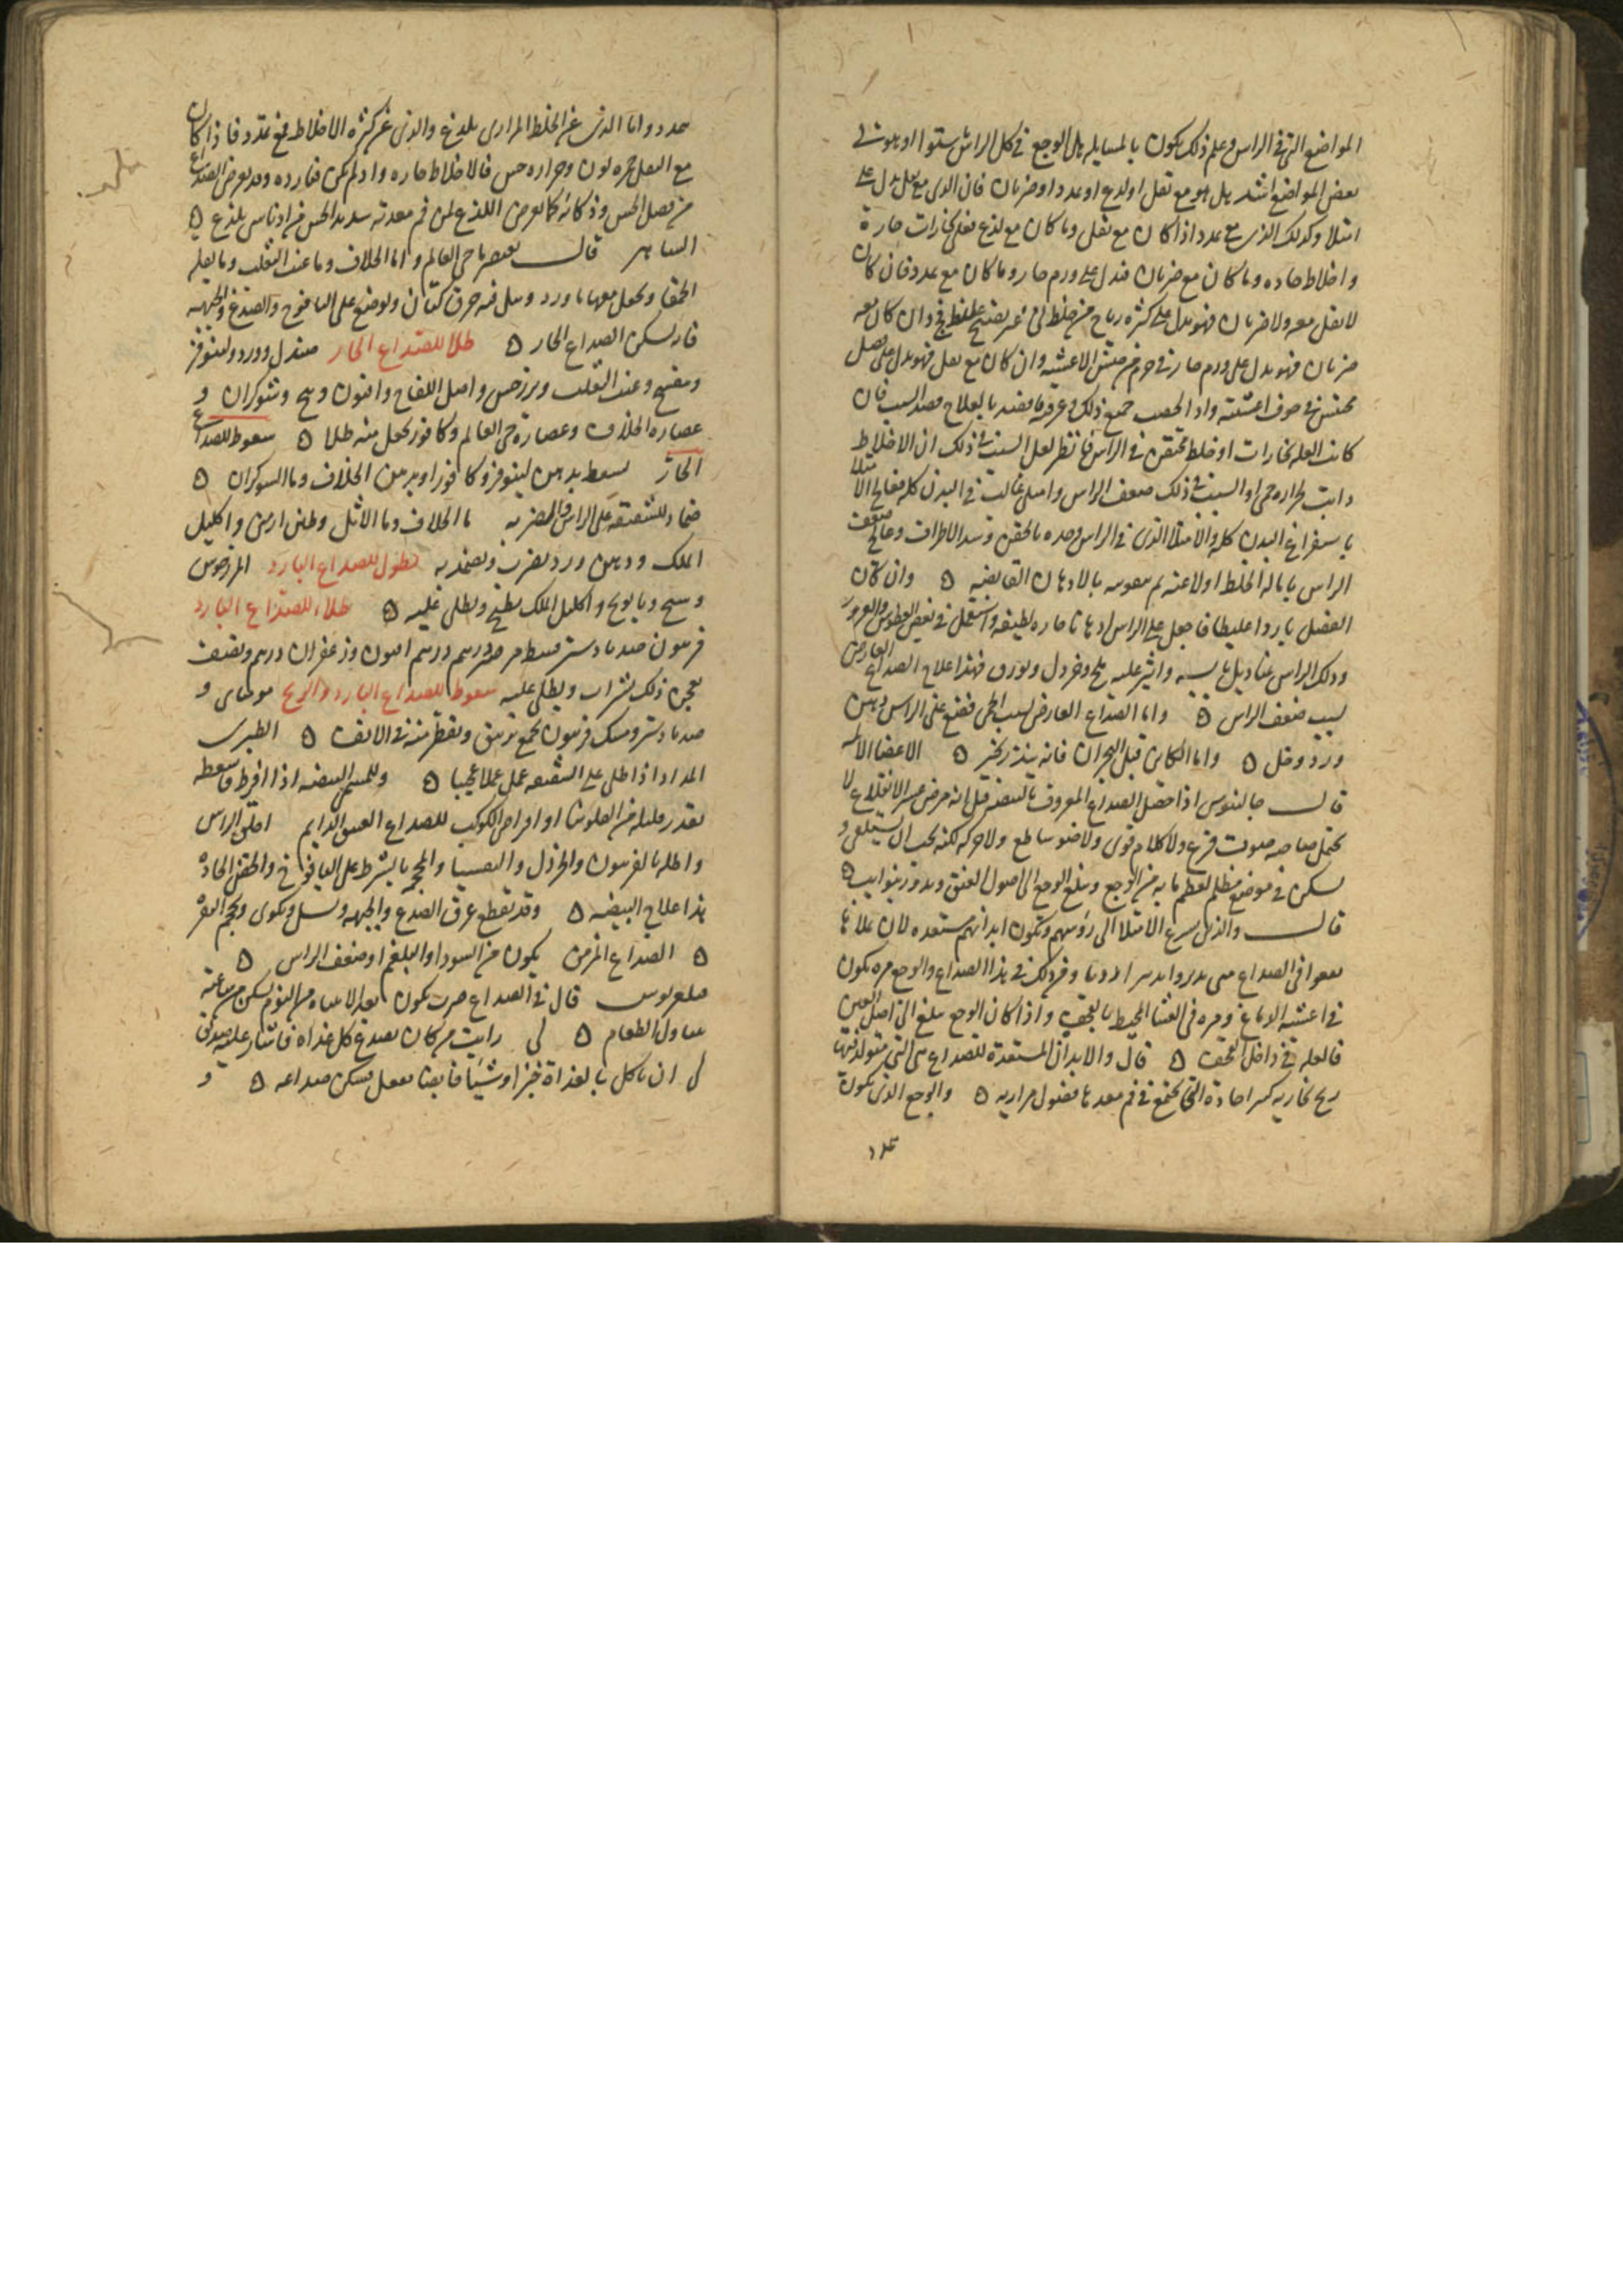 المواضع التى فى الراس وعلم ذلك يكون بالمسايله هل الوجع فى كل الراس ستوا او هو فى
بعض المواضع اشد بل هو مع ثقل او لدع او تمدد او ضربان فان الذى مع ثقل يدل على
امتلا وكذلك الذى مع تمدد اذا كان مع ثقل وما كان مع لذع فعلى بخارات حارة
واخلاط حاده وما كان مع ضربان فيدل على ورم حار وما كان مع تمدد فان كان
لا ثقل معه ولا ضربان فهو يدل على كثره رياح من خلط نى غير نضيج غليظ وان كان معه
ضربان فهو يدل على ورم حار فى جرم من الاغشيه وان كان مع ثقل فهو يدل على فصل
محتبس فى جوف اغشيته واذا جميع ذلك وعرفته فاقصد بالعلاج قصد السبب فان
كانت العله بخارات او خلط محتقن فى الراس فانظر لعل السبب فى ذلك ان الاخلاط
ذابت لحراره حمى او السبب فى ذلك ضعف الراس وامتلى غالب فى البدن كله فعالج الامتلا
باستفراغ البدن كله والامتلا الذى فى الراس وحده بالحقن وشد الاطراف وعالج ضعف
الراس بازاله الخلط اولا عنه ثم بتقويته بالادهان القابضه ٥ وان كان
الفضل باردا غليظا فاجعل على الراس ادهانا حاره لطيفه واستعمل فى بعض العطوس والغرور
ودلك الراس بمناديل يابسه وانثر عليه ملح وخردل وبورق فهذا علاج الصداع العارض
بسبب ضعف الراس ٥ واما الصداع العارض بسبب الحمى فضع على الراس دهن
ورد وخل ٥ واما الكاين قبل البحران فانه ينذر بخير ٥ الاعضا الالمه
قال جالينوس اذا حصل الصداع المعروف بالبيضه قيل انه مرض عسر الانقلاع لا
يحتمل صاحبه صوت قرع ولا كلام قوى ولا ضو ساطع ولا حركه لكنه يحب ان يستلقى و
يسكن فى موضع مظلم لعظم ما به من الوجع ويبلغ الوجع الى اصول العنق ويدور بنوايب ٥
قال والذين يسرع الامتلا الى رؤسهم وتكون ابدانهم مستعده لان علاها
فى اغشيه الدماغ ومره فى الغشا المحيط بالقحف واذا كان الوجع يبلغ الى اصل العين
فالعله فى داخل القحف ٥ قال والابدان المستعدة للصداع هى التى يتولد فيها
ريح بخاريه كثيرا حادة التى تجتمع فى فم معدها فضول مراريه ٥ والوجع الذى يكون
تمدد
بتمدد واما الذى عن الخلط المرارى بلذع والذى عن كثره الاخلاط فمع تمدد فاذا كان
مع الثقل حمره لون وحراره حس فالاخلاط حاره واذ لم يكن فبارده وقد يعرض الصداع
من فضل الحس وذكائه كما يعرض اللذع لمن فم معدته شديد الحس من ادناسى يلذع ٥
الساهر قال يعصر ماحى العالم واما الخلاف وما عنب الثعلب وما بقله
الحمقا ويجعل معها ماورد ويبل فيه خرق كتان ويوضع على اليافوخ والصدغ والجبهه
فانه يسكن الصداع الحار ٥ طلا للصداع الحار صندل وورد ولينوفر
وبنفسج وعنب الثعلب وبزر خس واصل اللفاح وافيون وبنج وشوكران و
عصاره الخلاف وعصارة حى العالم وكافور يجعل منه طلا ٥ سعوط للصداع
الحار يسعط بدهن لينوفر وكافور او بدهن الخلاف وما الشوكران ٥
ضماد للشقيقه على الراس والمضربه ما الخلاف وما الاثل وطين ارمنى واكليل
الملك ودهن ورد يضرب ويضمد به نطول للصداع البارد المرزنجوس
وشيح وبابونج واكليل الملك يطبخ ويطلى عليه ٥ طلاء للصداع البارد
فربيون جندبادستر قسط مر درهم درهم افيون وزعفران درهم ونصف
يعجن ذلك بشراب ويطلى عليه سعوط للصداع البارد والريح موميائى و
جندبادستر ومسك فربيون يجمع بزنبق ويقطر منه فى الانف ٥ الطبرى
المداد اذا طلى على الشقيقه عمل عملا عجيبا ٥ وللمسمى البيضه اذا افرط فاسعطه
بقدر فلفله من الفلونيا او اقراص الكوكب للصداع العسر الدايم احلق الراس
واطله بالفربيون والخردل والثافسيا والمحجمه بالشرط على اليافوخ والحقن الحادة
هذا علاج البيضه ٥ وقد تقطع عرق الصدع والجبهه وتسل وتكوى وتحجم النقرة
٥ الصداع المزمن يكون من السودا والبلغم او ضعف الراس ٥
قال فى الصداع ضرب يكون بعد الانتباه من النوم يسكن من ساعته
بتناول الطعام ٥ لى رايت من كان يصدع كل غداه فاشار عليه صديق
لى ان ياكل بالغداة خبزا وشيئا قابضا ففعل فسكن صداعه ٥ و